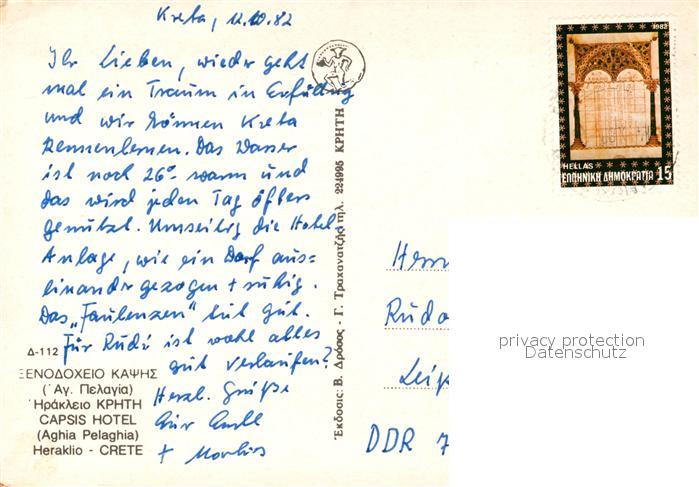 Kreta, 12.10.82
Ihr Lieben, wieder geht
mal ein Traum in Erfüllung
und wir können Kreta
kennenlernen. Das Wasser
ist noch 26° warm und
das wird jeden Tag öfters
genützt. Umseitig die Hotel-
Anlage, wie ein Dorf aus=
einandergezogen + ruhig.
Das „Faulenzen" tut gut.
Für Rudi ist wohl alles
gut verlaufen?
Herzl. Grüße
Eure
+
Δ-112
ΞΕΝΟΔΟΧΕΙΟ ΚΑΨΗΣ
(῾Αγ. Πελαγία)
῾Ηράκλειο ΚΡΗΤΗ
CAPSIS HOTEL
(Aghia Pelaghia)
Heraklio - CRETE
Ἔκδοσις: Β. Δρόσος - Γ. Τραχανατζῆς τηλ. 224995 ΚΡΗΤΗ
1982
HELLAS
ΕΛΛΗΝΙΚΗ ΔΗΜΟΚΡΑΤΙΑ 15
Herrn
Rudo
Leip
DDR 7
privacy protection
Datenschutz